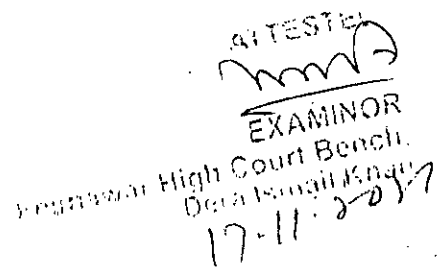 ATTESTED
EXAMINOR
Peshawar High Court Bench,
Dera Ismail Khan
17-11-2017